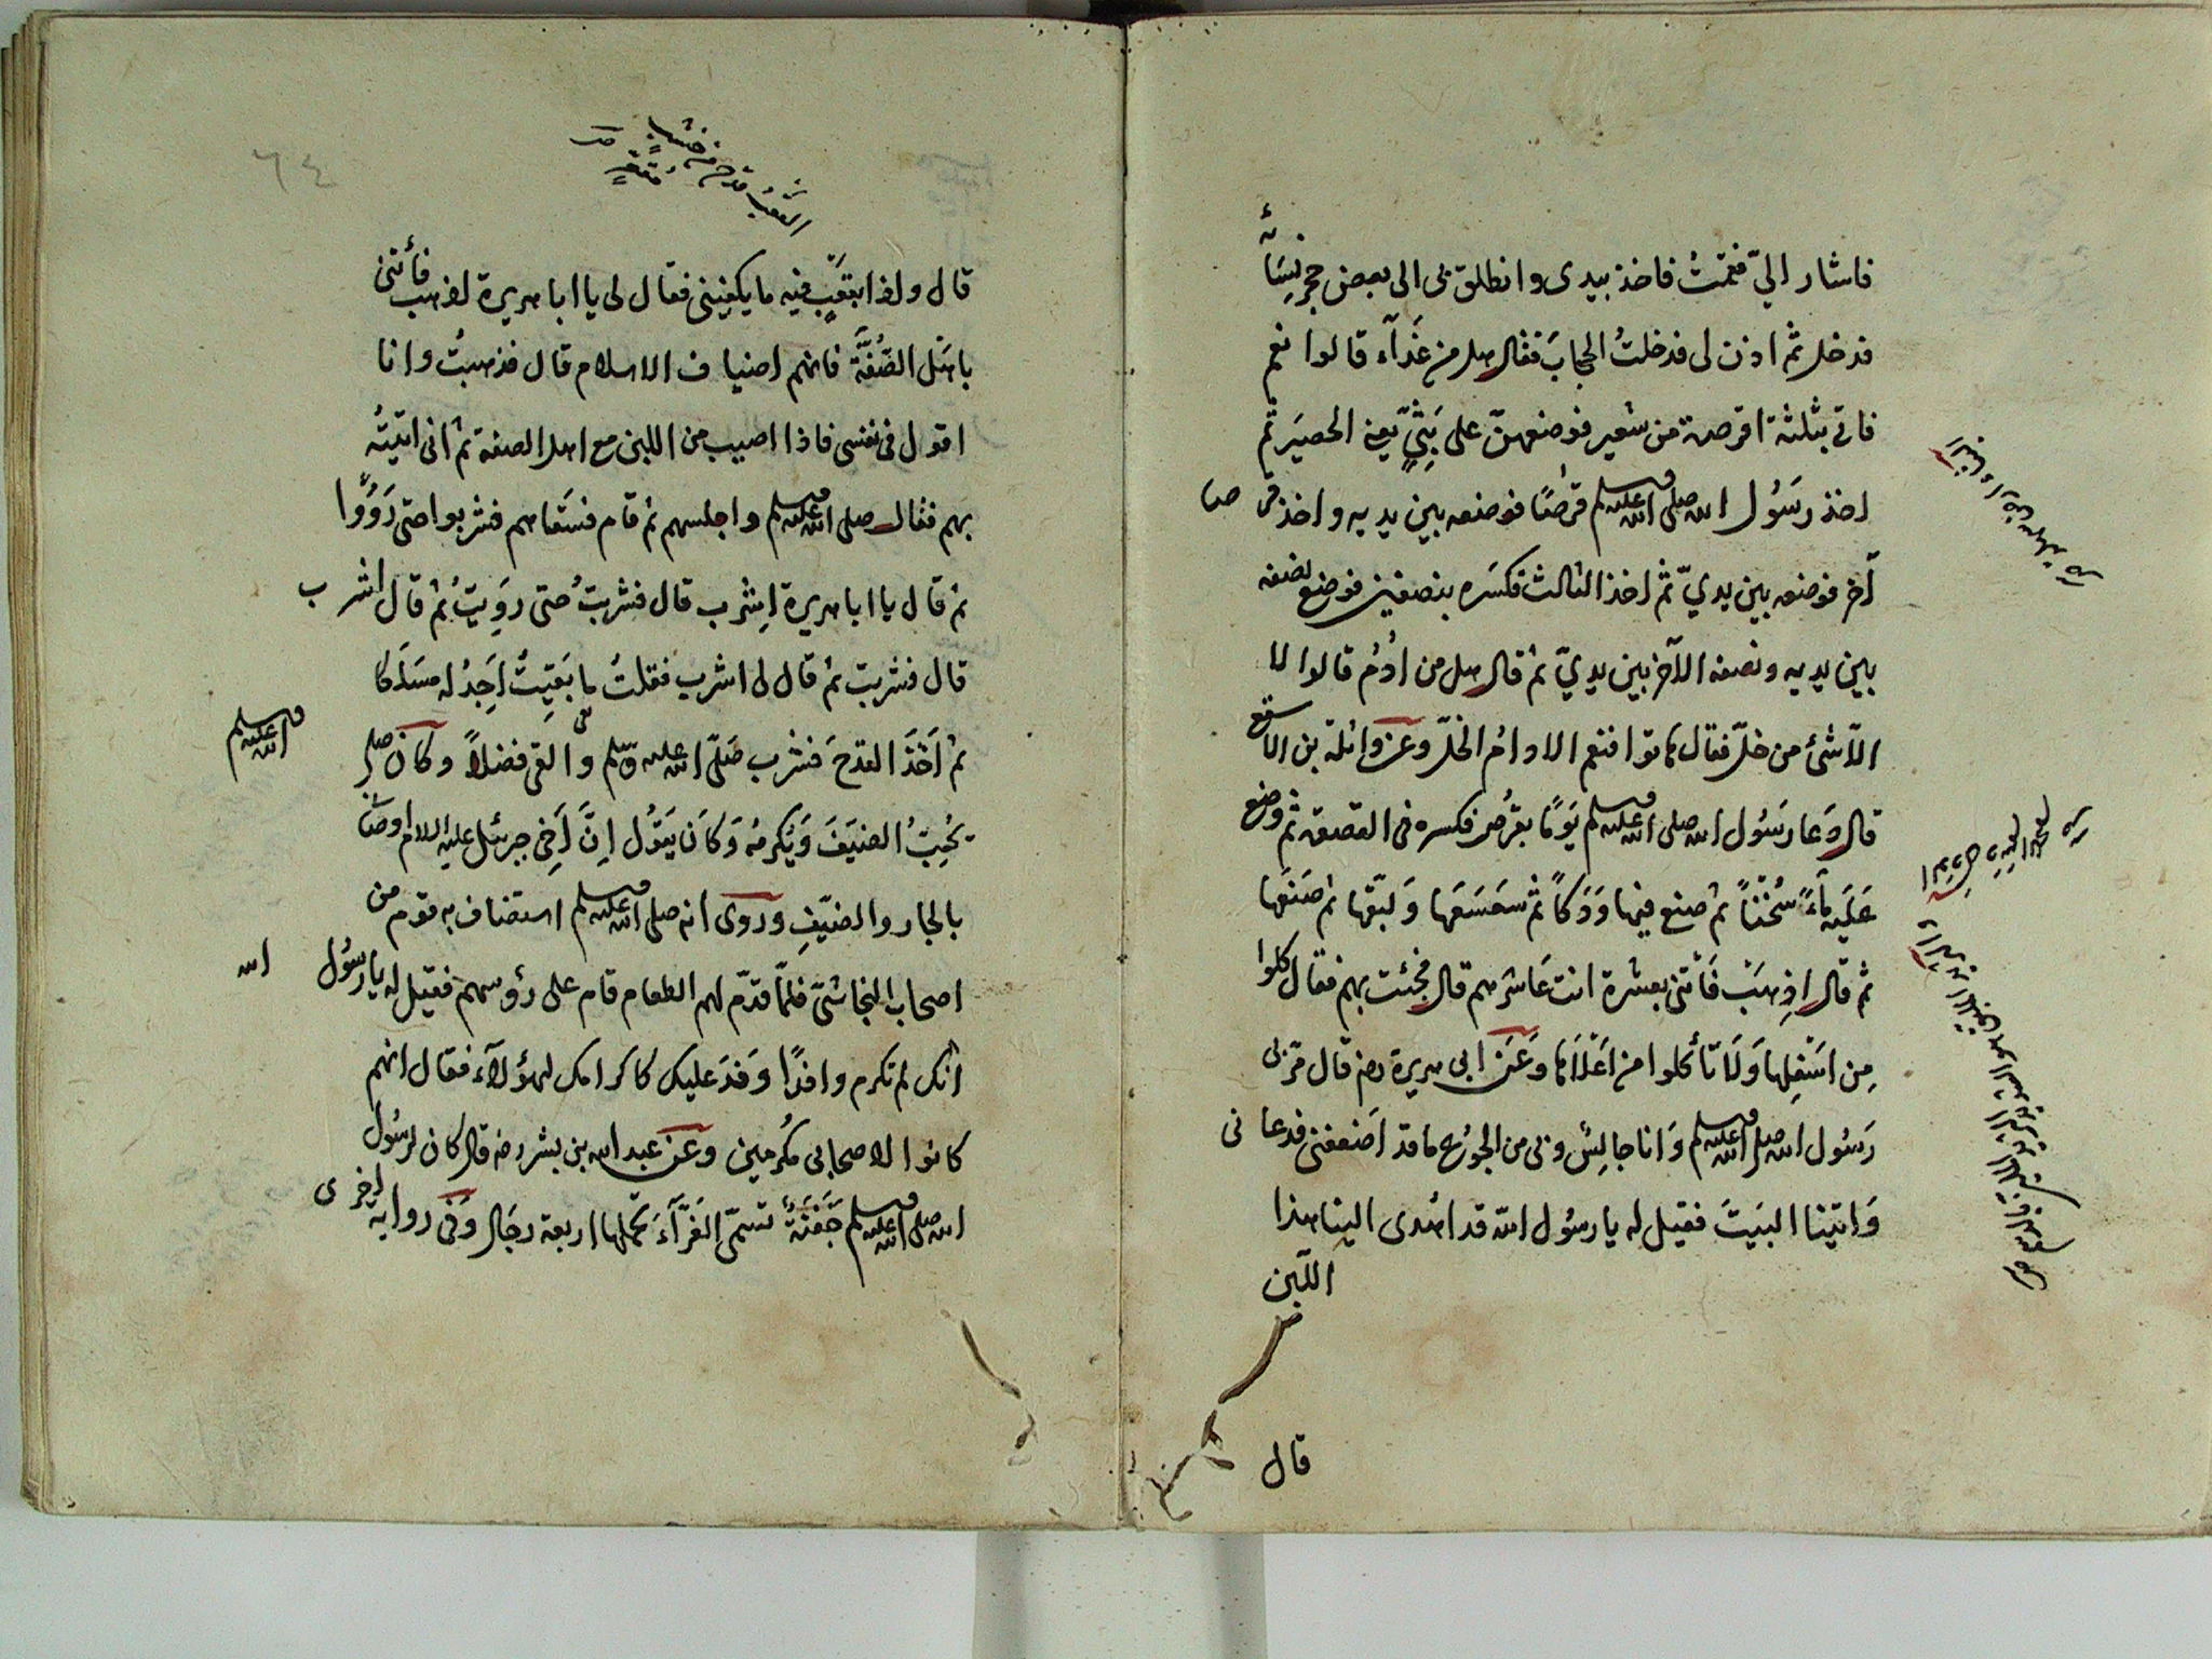 فاشار اليّ فقمتُ فاخذ بيدى وانطلق بى الى بعض حجر نسآئه
فدخل ثم اذن لى فدخلتُ الحجابَ فقال هل من غَدآء قالوا نعم
فاتى بثلثة اقرصة من شعير فوضعهنّ على بَتِّيٍّ يعنى الحصيَر ثم
اخذ رسُول الله صلى الله عليه وسلم قرصًا فوضعه بين يديه واخذ قرصا
آخر فوضعه بين يديّ ثم اخذ الثالث فكسَره بنصفين فوضع نصفه
بين يديه ونصفه الآخر بين يديّ ثم قال هل من ادُم قالوا لا
الّا شئ من خلّ فقال هاتوا فنعم الادامُ الخلّ وعن واثلة بن الاسقع
قال دَعا رسَول الله صلى الله عليه وسلم يَومًا بقرُص فكسره فى القصعة ثم وضع
عَلَيه مآءً سُخنًا ثم صنع فيها وَدَكاً ثم سَغسَغَها وَلبّقها ثم صَعنَبَها
ثم قال اذِهَبْ فَأتنى بعشرة انت عَاشرهم قال فجئت بهم فقال كلوا
مِن اسَفلِها وَلَا تأكلوا من اَعْلَاها وَعَن ابى هريرة رضه قال مرّ بى
رَسُول الله صلى الله عليه وسلم وَانا جالِسٌ وبى من الجوُع ما قد اَضعفنى فدعانى
وَاتينا البيَتَ فقيل له يا رسُول الله قد اهُدى الينا هذا
اللّبن
قال
القعبُ قدح من خشبٍ
مُقعّرٍ صـ
٦٤
قال ولفا بقعبٍ فيه ما يكفينى فقال لى يا ابا هريرة اذهب فأتنى
باهَل الصُّفَّة فانهم اضياف الاسلام قال فذهبتُ وانا
اقول فى نفسى فاذا اصيب من اللبن مع اهل الصفة ثم انى اتيتُه
بهم فقال صلى الله عليه وسلم واجلسهم ثم قام فسَقاهم فشربوا حتى رَوُوا
ثم قال يا ابا هريرة اِشرب قال فشربتُ حتى روِيتُ ثم قال اشرب
قال فشربت ثم قال لى اشرب فقلتُ ما بَقِيتُ اَجِدُ له مسَلَكا
ثم اَخَذَ القدحَ فشرب صَلّى الله عليه وسلم والقى فضلاً وكان صلى الله عليه وسلم
يُحِبّ الضيَفَ وَيُكرمُه وَكاَن يَقوُل اِنَّ اَخِى جبرئيل عليه السلام اوصَانى
بالجار والضيّفِ وروى انه صلى الله عليه وسلم استضاف به قوم من
اصحاب النجاشىّ فلمّا قدّم لهم الطعام قام على رؤسهم فقيل له يا رسُول الله
انك لم تكرم وافدًا وَفدَ عليك كاكرامك لهؤلآء فقال انهم
كانوا لاصحابى مكُرمين وعَن عبد الله بن بشر رضه قال كان لرسُول
الله صلى الله عليه وسلم جَفَنَةٌ تسمّى الغَرّآءَ يحملها اربعة رجَال وَفى رواية اخرى